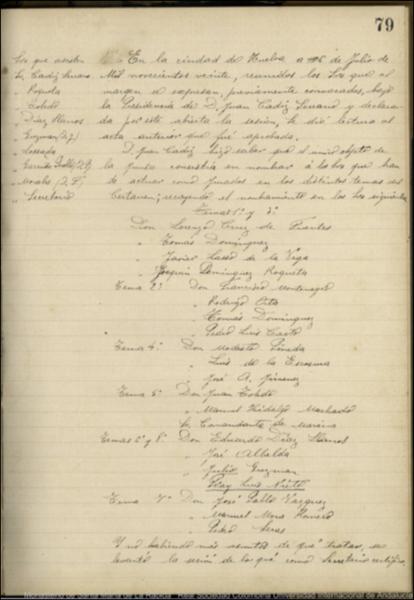 79
Sres que asisten
Sr. Cadiz Serrano
" Roqueta
" Toledo
" Diaz
" Guzman (D. J.)
" Lossada
" Garrido
" Morales
" Secretario
En la ciudad de Huelva a 16 de Julio de
Mil novecientos veinte, reunidos los Sres que al
margen se expresan, previamente convocados, bajo
la Presidencia de D. Juan Cadiz Serrano y declara-
da por este abierta la sesión, se dió lectura al
acta anterior que fué aprobada.
D. Juan Cadiz hizo saber que el unico objeto de
la junta consistia en nombrar á los que han
de actuar como jurados en los distintos temas del
Certamen; recayendo el nombramiento en los Sres siguientes
Temas 1º y 3º
Don Lorenzo Cruz de Fuentes
" Tomás Dominguez
" Javier Lasso de la Vega
" Joaquin Dominguez Roqueta
Tema 2º Don Francisco Montenegro
" Rodrigo
" Tomás Dominguez
" Pedro Luis
Tema 4º Don Modesto Pineda
" Luis de la
" José A. Jimenez
Tema 5º Don Juan Toledo
" Manuel Hidalgo Machado
Sr. Comandante de Marina
Temas 6º y 8º Don Eduardo Diaz
" José Albelda
" Julio Guzman
Fray Luis Nieto
Tema 7º Don José Pablo Vazquez
" Manuel Mora Romero
" Pedro
Y no habiendo más asuntos de qué tratar, se
levantó la sesión de lo que como Secretario certifico.